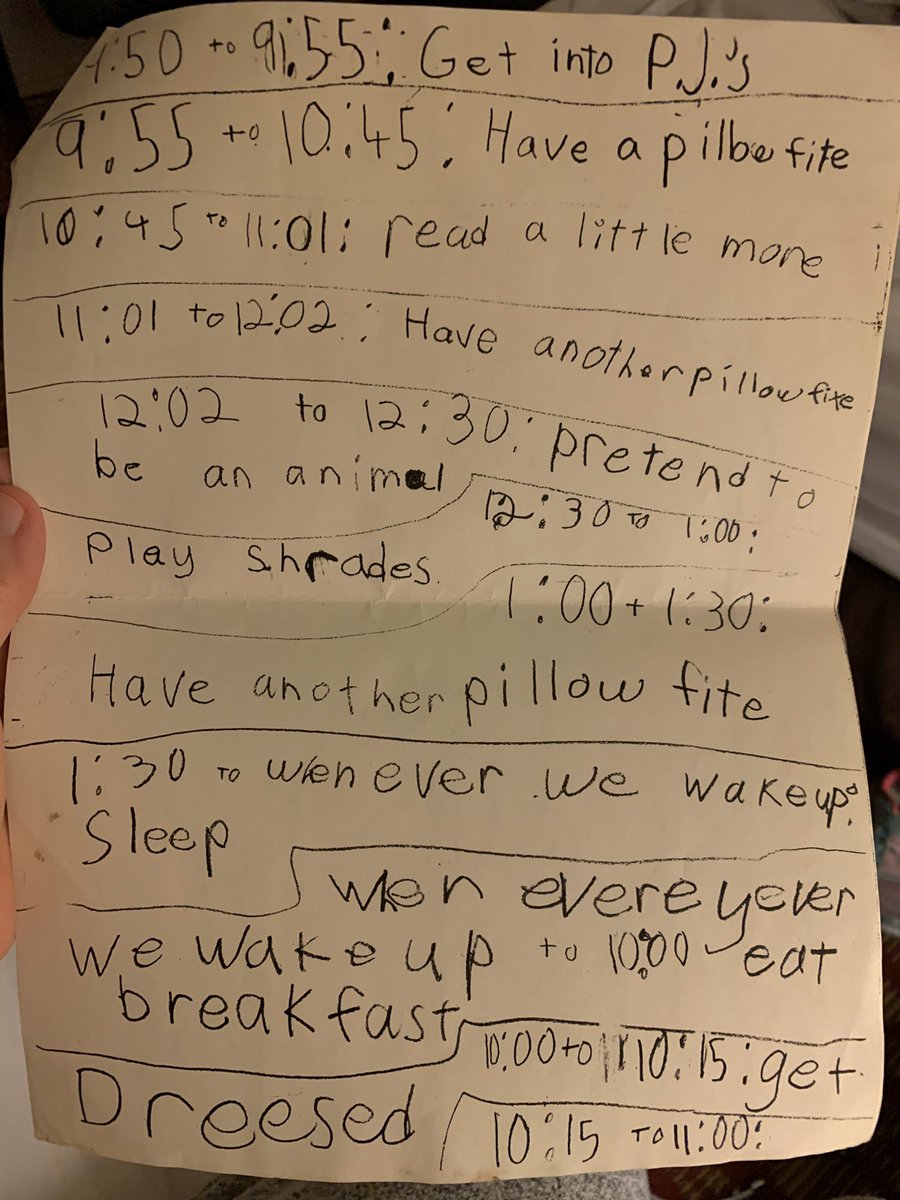 :50 to 9:55: Get into P.J.'s
9:55 to 10:45: Have a pillow fite
10:45 to 11:01: read a little more
11:01 to 12:02: Have another pillow fite
12:02 to 12:30: pretend to
be an animal
12:30 to 1:00:
Play shrades.
1:00 + 1:30:
Have another pillow fite
1:30 to when ever we wake up:
Sleep
we wake up to 10:00 eat
breakfast
10:00 to 10:15: get
Dreesed
10:15 to 11:00: